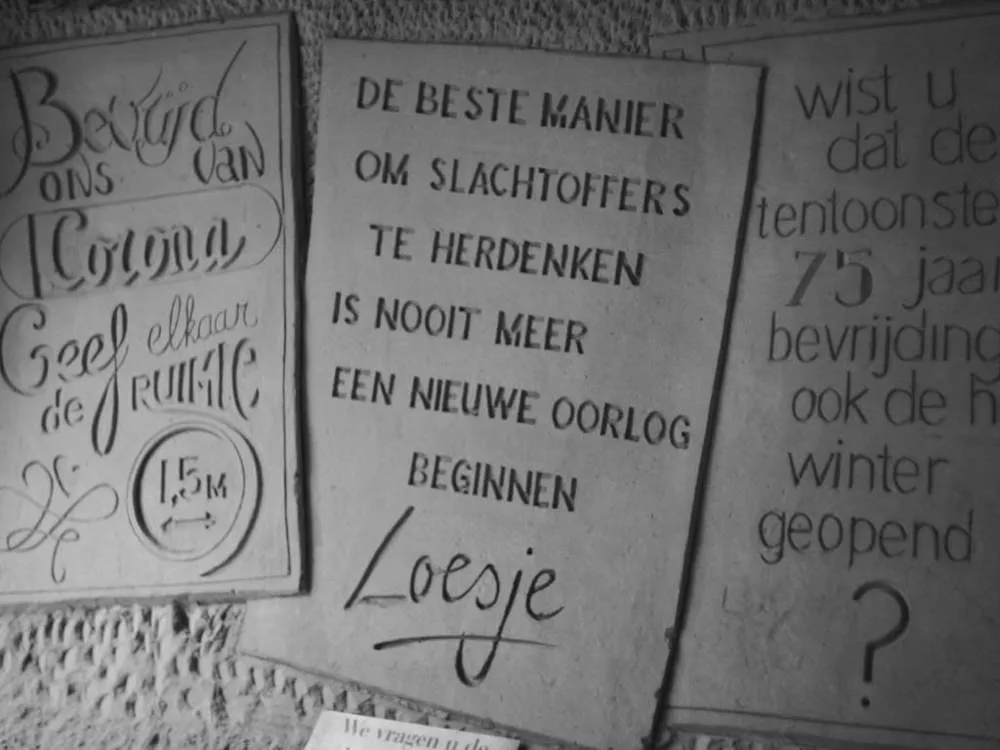 Bevrijd
ons van
Corona
Geef elkaar
de RUIMTE
1,5M
DE BESTE MANIER
OM SLACHTOFFERS
TE HERDENKEN
IS NOOIT MEER
EEN NIEUWE OORLOG
BEGINNEN
Loesje
wist u
dat de
tentoonste
75 jaar
bevrijding
ook de
winter
geopend
?
We vragen u de